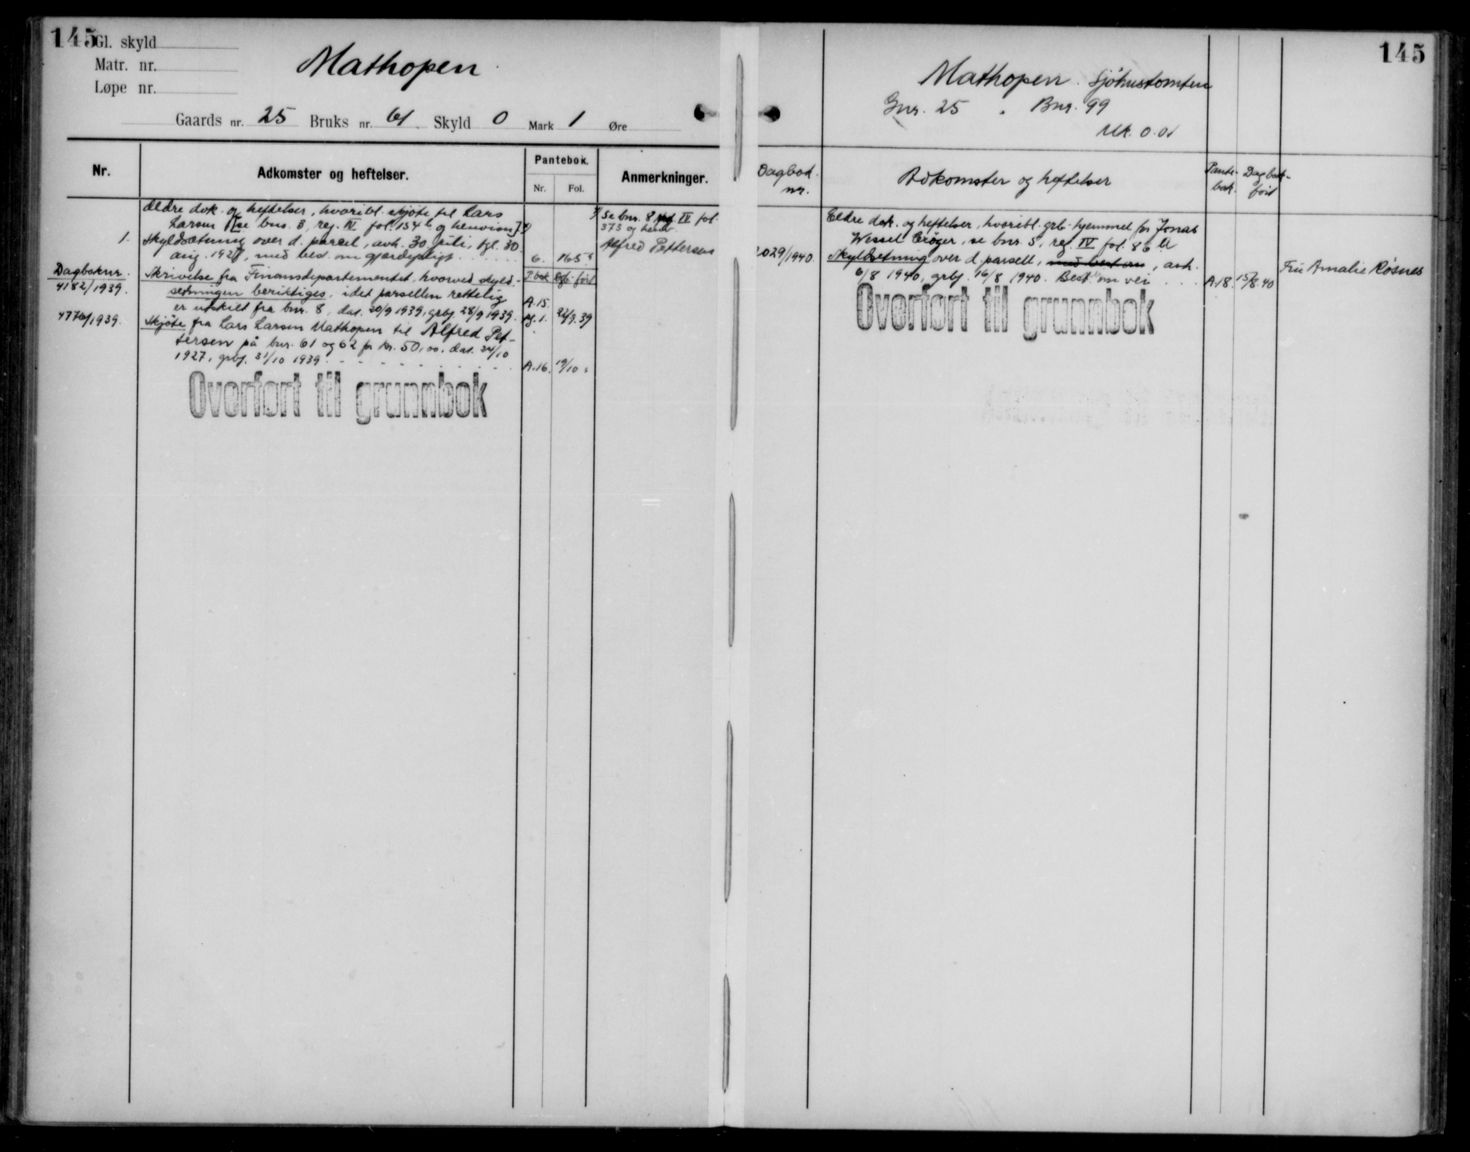 145
Gl. skyld
Matr. nr.
Løpe nr.
Mathopen
Gaards nr. 25 Bruks nr. 61 Skyld 0 Mark 1 Øre
Nr.
Adkomster og heftelser.
Pantebok.
Nr. Fol.
Anmerkninger.
Ældre dok. og heftelser, hvoribl. skjøte til Lars
Larsen [se bnr. 8, reg. IV fol. 154 b og henvisn.]
1. Skyldsætning over d. parcel, avh. 30 juli, tgl. 30
aug. 1927, med best. om gjærdepligt 6. 165
Se bnr. 8 IV fol.
373 og
Alfred Pettersen
Dagboknr.
4182/1939.
Skrivelse fra Finansdepartementet hvorved skyld-
setningen beriktiges, idet parsellen rettelig
er utskilt fra bnr. 8, dat. 20/9 1939, grbf. 28/9 1939.
P.bok Dgb. ført
A. 15.
/9.39
4776/1939.
Skjøte fra Lars Larsen Mathopen til Alfred Pet-
tersen på bnr. 61 og 62 for kr. 50,00, dat. 24/10
1927, grbf. 31/10 1939 A. 16. 19/10
Overført til grunnbok
145
Mathopen Sjøhustomten
Gnr. 25 Bnr. 99
Mk. 0.01
Dagbod.
nr.
Adkomster og heftelser
Pante-
bok.
Dagbok-
ført
Eldre dok. og heftelser, hvoribl. grb. hjemmel for Jonas
Wessel Crøger, se bnr. 5, reg. IV fol. 86 b
2029/1940 Skyldsetning over d. parsell, , avh.
6/8 1940, grbf. 16/8 1940. Best. om vei A. 18. 15/8 40
Fru Amalie Røsnes
Overført til grunnbok